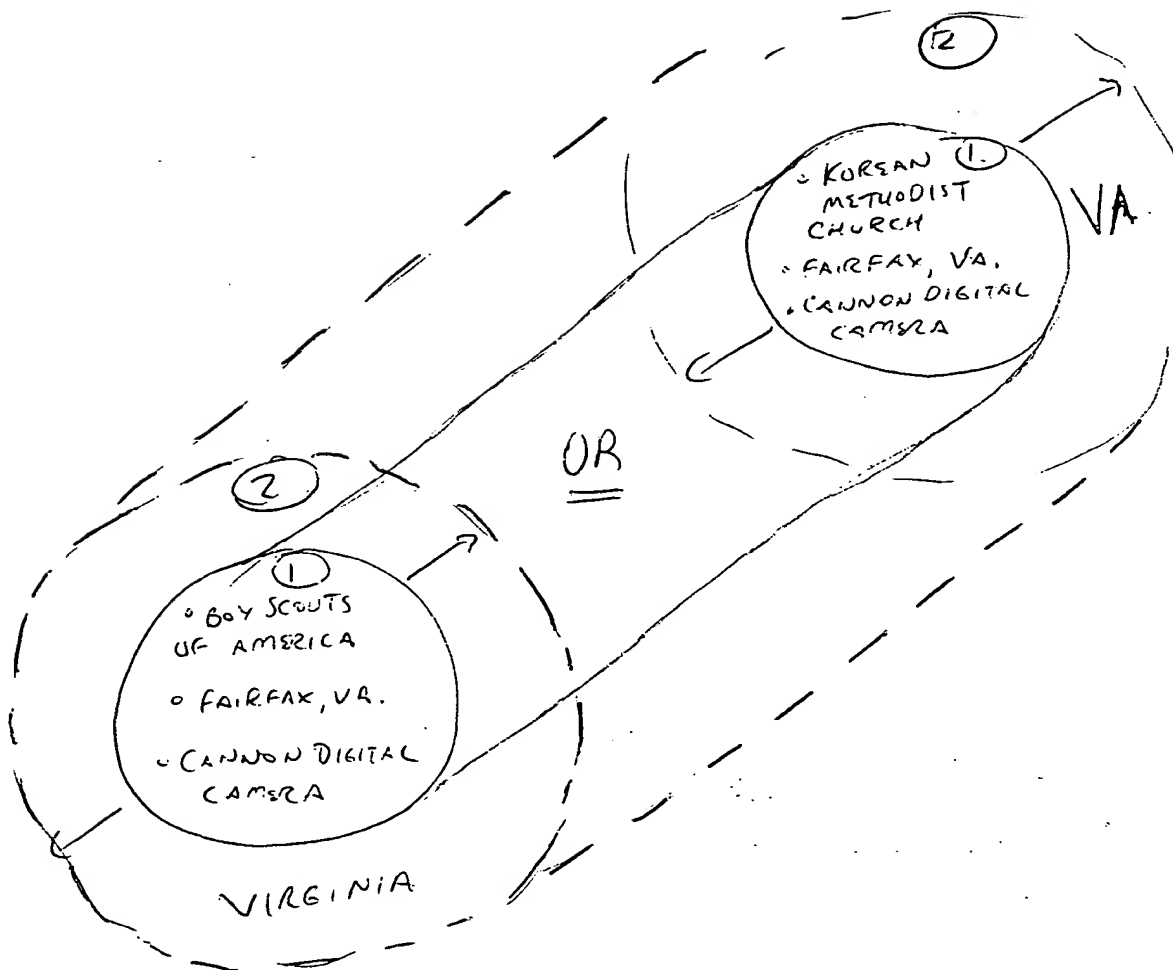 2
1.
• KOREAN
METHODIST
CHURCH
• FAIRFAX, VA.
• CANNON DIGITAL
CAMERA
VA
OR
2
1
• BOY SCOUTS
OF AMERICA
• FAIRFAX, VA.
• CANNON DIGITAL
CAMERA
VIRGINIA